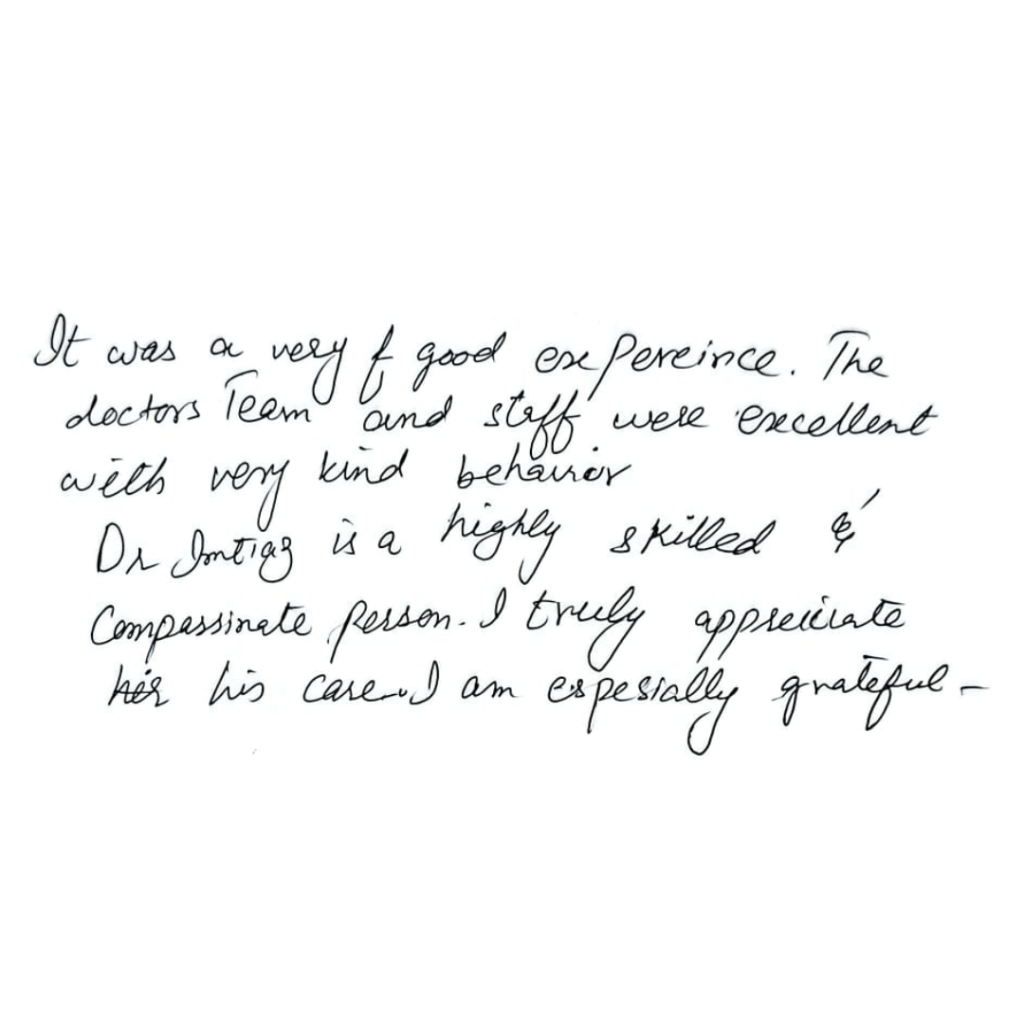 It was a very f good expereince. The
doctors Team and staff were excellent
with very kind behavior
Dr Imtiaz is a highly skilled &
Compassinate person. I truly appreiciate
his his care. I am espesially grateful -